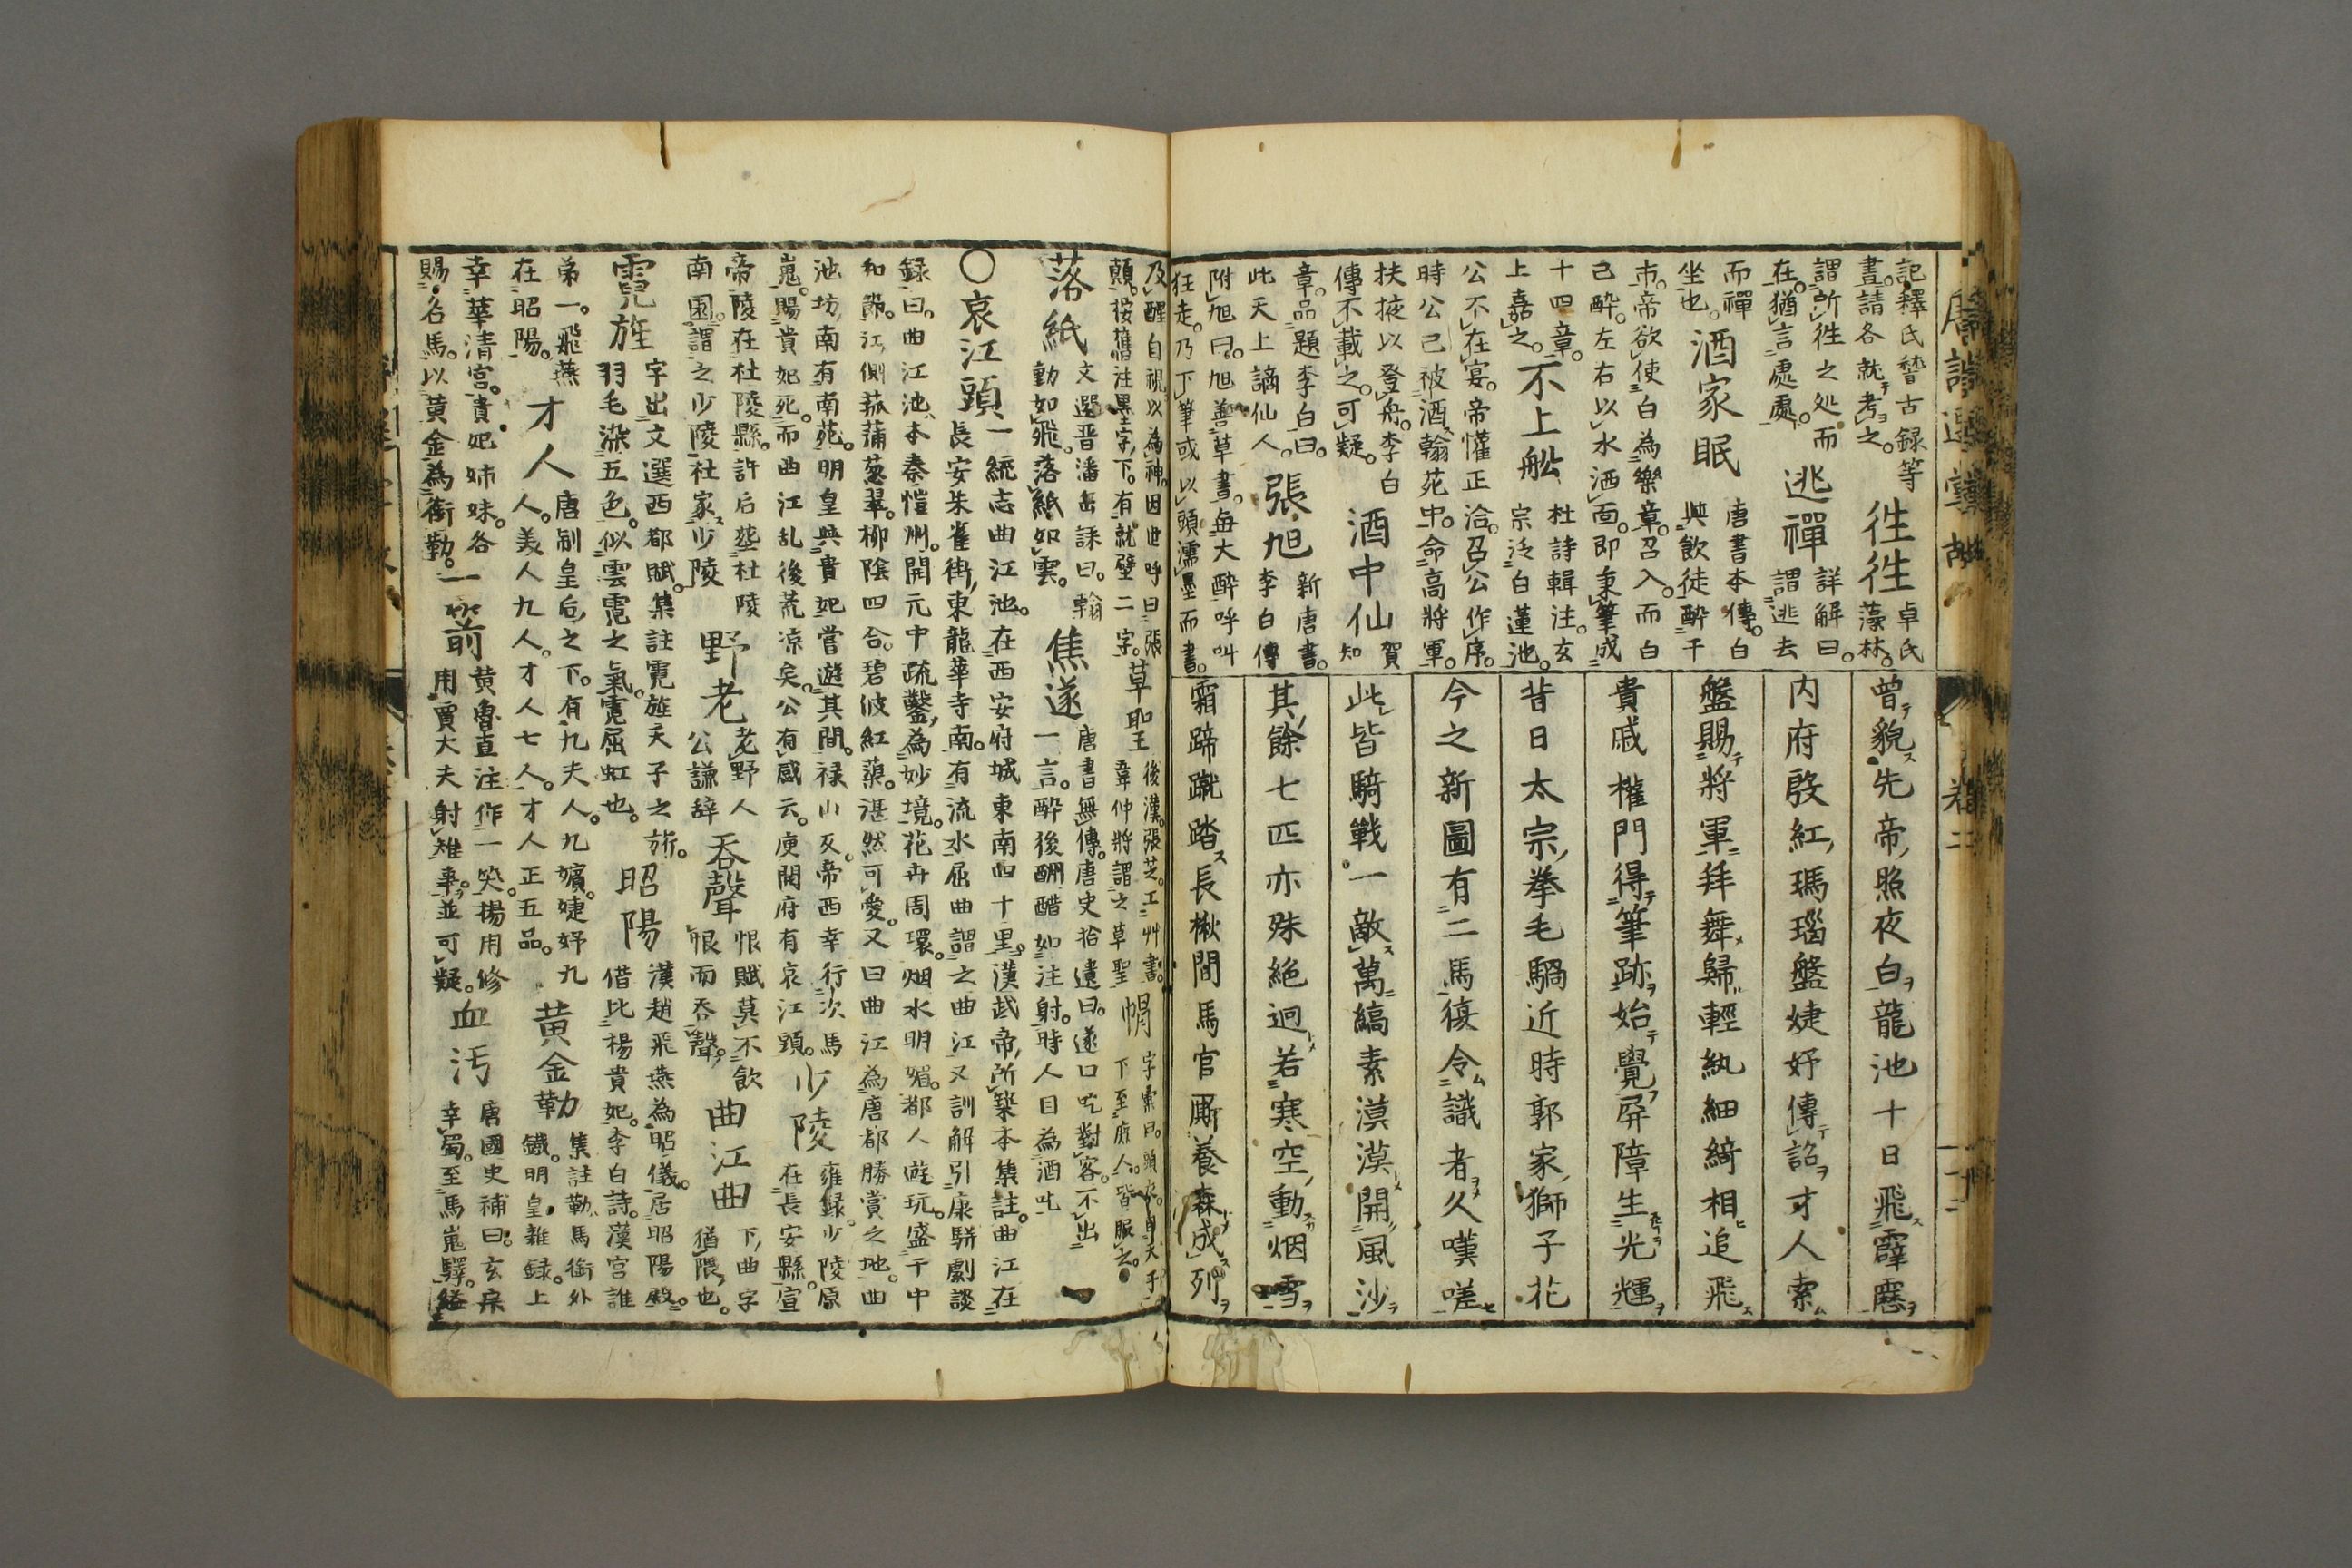 記釋氏稽古録等
晝請各就考之。
往往
卓氏
藻林。
謂所往之処而
在。猶言處處。
逃禪
詳解曰。
謂逃去
而禪
坐也。
酒家眠
唐書本傳。白
與飲徒醉于
市。帝欲使白為樂章。召入。而白
已醉。左右以水洒面。即秉筆成
十四章。
上嘉之。
不上舩
杜詩輯注。玄
宗泛白蓮池。
公不在宴。帝懽正洽。召公作序。
時公已被酒翰苑中。命高將軍。
扶掖以登舟。李白
傳不載之。可疑。
酒中仙
賀
知
章。品題李白曰。
此天上謫仙人。
張旭
新唐書。
李白傳
附旭曰。旭善草書。每大醉呼叫
狂走。乃下筆或以頭濡墨而書。
曾貌先帝照夜白龍池十日飛霹靂
内府殷紅瑪瑙盤婕妤傳詔才人索
盤賜將軍拜舞歸輕紈細綺相追飛
貴戚權門得筆跡始覺屏障生光輝
昔日太宗拳毛騧近時郭家獅子花
今之新圖有二馬復令識者久嘆嗟
此皆騎戰一敵萬縞素漠漠開風沙
其餘七匹亦殊絶迥若寒空動烟雪
霜蹄蹴踏長楸間馬官厮養森成列
及醒自視以為神。因世呼曰張
顛。按舊注墨字下。有就壁二字。
草聖
後漢。張芝。工艸書。
韋仲將謂之草聖
帽
下至庶人。皆服之。
落紙
文選晋潘岳誄曰。翰
動如飛。落紙如雲。
焦遂
唐書無傳。唐史拾遺曰。遂口吃對客。不出
一言。醉後酬醋如注射。時人目為酒吃
〇哀江頭
一統志曲江池。在西安府城東南四十里。漢武帝所築本集註。曲江在
長安朱雀街東龍華寺南。有流水屈曲謂之曲江又訓解引康駢劇談
録曰。曲江池本秦愷州。開元中疏鑿為妙境。花卉周環。烟水明媚。都人遊玩。盛于中
和節。江側菰蒲葱翠。柳陰四合。碧波紅蕖。湛然可愛。又曰曲江為唐都勝賞之地。曲
池坊南有南苑。明皇與貴妃嘗遊其間。禄山反。帝西幸行次馬
嵬。賜貴妃死。而曲江乱後荒凉矣。公有感云。庾開府有哀江頭。
少陵
雍録。少陵原
在長安縣。宣
帝陵在杜陵縣。許后葬杜陵
南園。謂之少陵杜家少陵
野老
老野人
公謙辞
吞聲
恨賦莫不飲
恨而吞聲。
曲江曲
下曲字
猶隈也。
霓旌
字出文選西都賦。集註霓旌天子之旂。
羽毛染五色。似雲霓之氣。霓屈虹也。
昭陽
漢趙飛燕為昭儀。居昭陽殿。
借比楊貴妃。李白詩。漢宮誰
第一。飛燕
在昭陽。
才人
唐制皇后之下。有九夫人。九嬪。婕妤九
人。美人九人。才人七人。才人正五品。
黄金勒
集註勒馬銜外
鐵。明皇雜録。上
幸華清宮。貴妃姉妹。各
賜名馬。以黄金為銜勒。
一箭
黄魯直注作一笑。楊用修
用賈大夫射雉事。並可疑。
血汚
唐國史補曰。玄宗
幸蜀。至馬嵬驛。縊